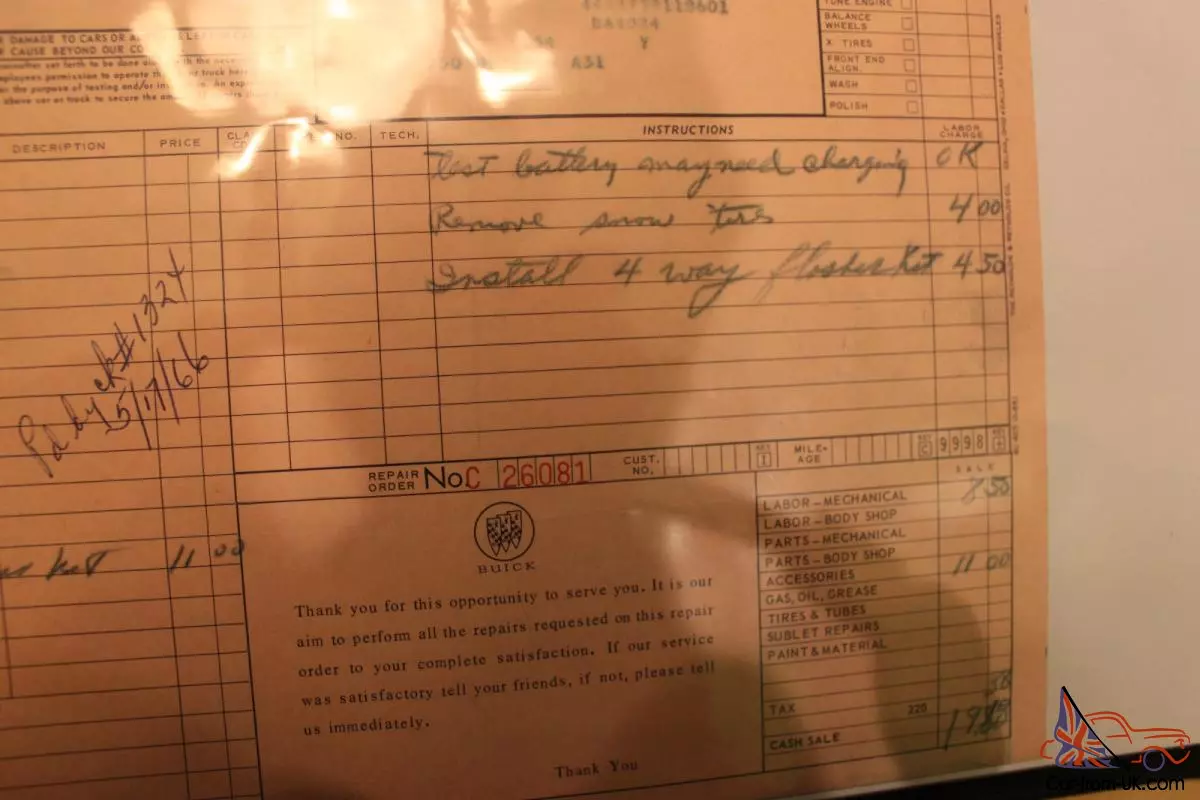 118601
Y
A31
TUNE ENGINE
BALANCE WHEELS
X TIRES
FRONT END ALIGN.
WASH
POLISH
DAMAGE TO CARS OR
CAUSE BEYOND OUR
forth to be done
employees permission to operate the or truck
the purpose of testing and/or
above car or truck to secure the
DESCRIPTION PRICE NO. TECH. INSTRUCTIONS LABOR CHARGE
Test battery may need charging OK
Remove snow tires 4 00
Install 4 way flasher kit 4 50
Pd by ck # 1324
5/17/66
REPAIR ORDER No C 26081 CUST. NO. KEY I MILE- AGE 9998
SALE
LABOR - MECHANICAL 8 50
LABOR - BODY SHOP
PARTS - MECHANICAL
PARTS - BODY SHOP
ACCESSORIES 11 00
GAS, OIL, GREASE
TIRES & TUBES
SUBLET REPAIRS
PAINT & MATERIAL
TAX 220
CASH SALE
kit 11 00
BUICK
Thank you for this opportunity to serve you. It is our
aim to perform all the repairs requested on this repair
order to your complete satisfaction. If our service
was satisfactory tell your friends, if not, please tell
us immediately.
Thank You
Car-from-UK.com